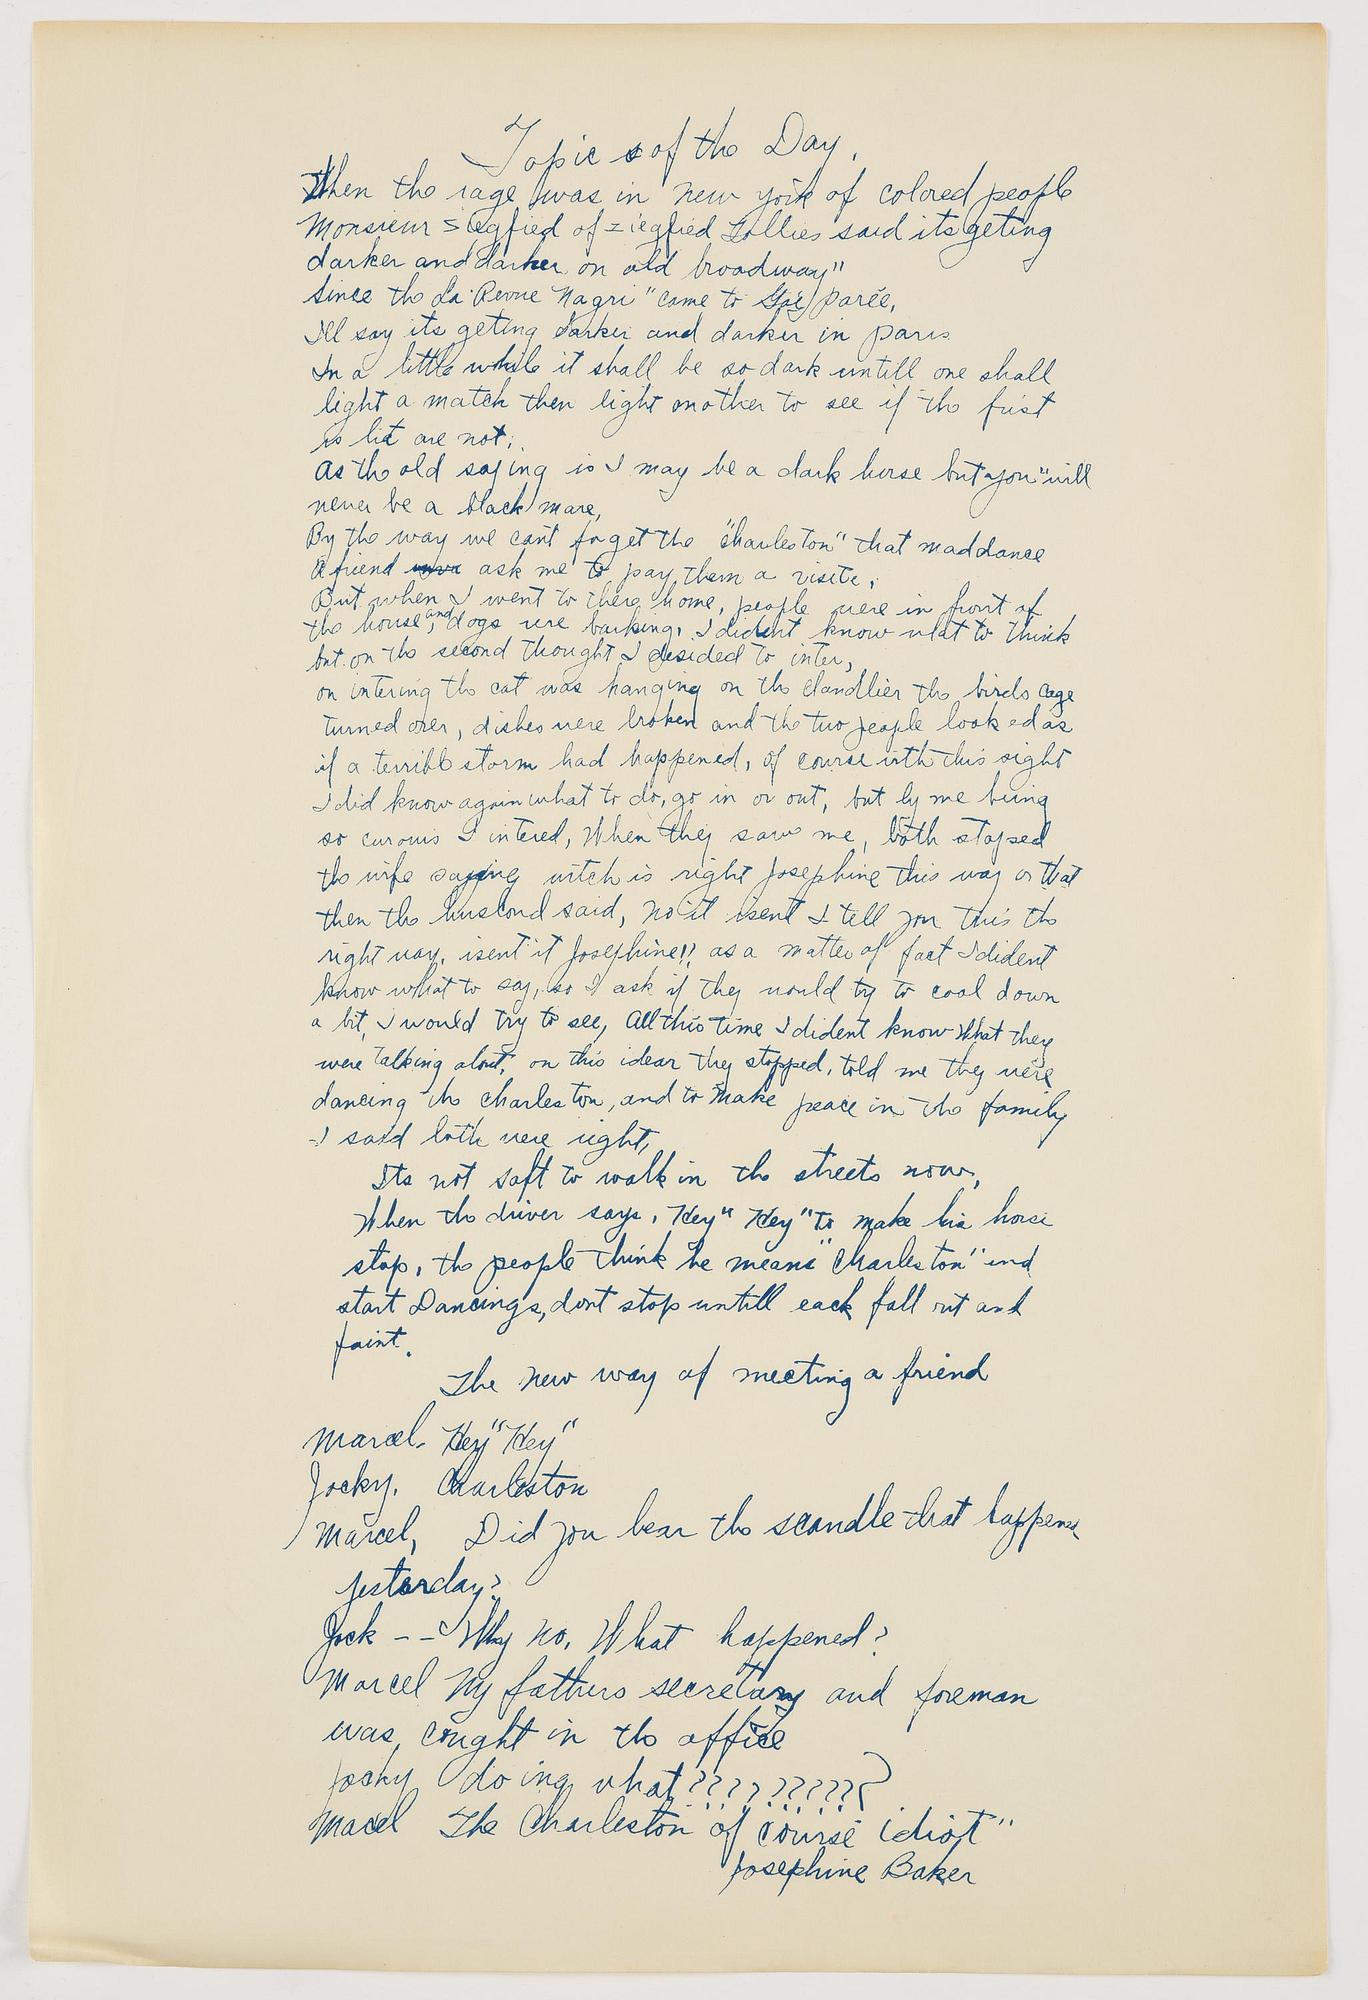 Topics of the Day.
When the rage was in New york of colored people
Monsieur Ziegfied of Ziegfied Follies said its geting
darker and darker on old broadway"
Since the La Revue Nagri" came to Gai paree,
I'll say its geting darker and darker in paris
In a little while it shall be so dark untill one shall
light a match then light another to see if the first
is lit are not;
As the old saying is I may be a dark horse but you "will
never be a black mare,
By the way we cant forget the "Charleston" that mad dance
A friend ask me to pay them a visite,
But when I went to there home, people were in front of
the house, and dogs were barking, I dident know what to think
but on the second thought I desided to inter,
on intering the cat was hanging on the clandlier the birds cage
turned over, dishes were broken and the two people looked as
if a terribl storm had happened, of course with this sight
I did know again what to do, go in or out, but by me being
so curous I intered, When they saw me, both stoped
the wife saying witch is right Josephine this way or that
then the husbond said, no it isent I tell you this the
right way, isent it Josephine!! as a matter of fact I dident
know what to say, so I ask if they would try to cool down
a bit, I would try to see, All this time I dident know what they
were talking about, on this idear they stopped, told me they were
dancing the charleston, and to make peace in the family
I said both were right,
Its not saft to walk in the streets now,
When the driver says, Hey" Hey" to make his horse
stop, the people think he means "Charleston" and
start Dancings, dont stop untill each fall out and
faint.
The new way of meeting a friend
Marcel. Hey" Hey"
Jocky. Charleston
Marcel, Did you hear the scandle that happened
yesterday?
Jock -- Why no, What happened?
Marcel My fathers secretary and foreman
was, cought in the office
Jocky doing what??????????
Macel The Charleston of course idiot"
Josephine Baker